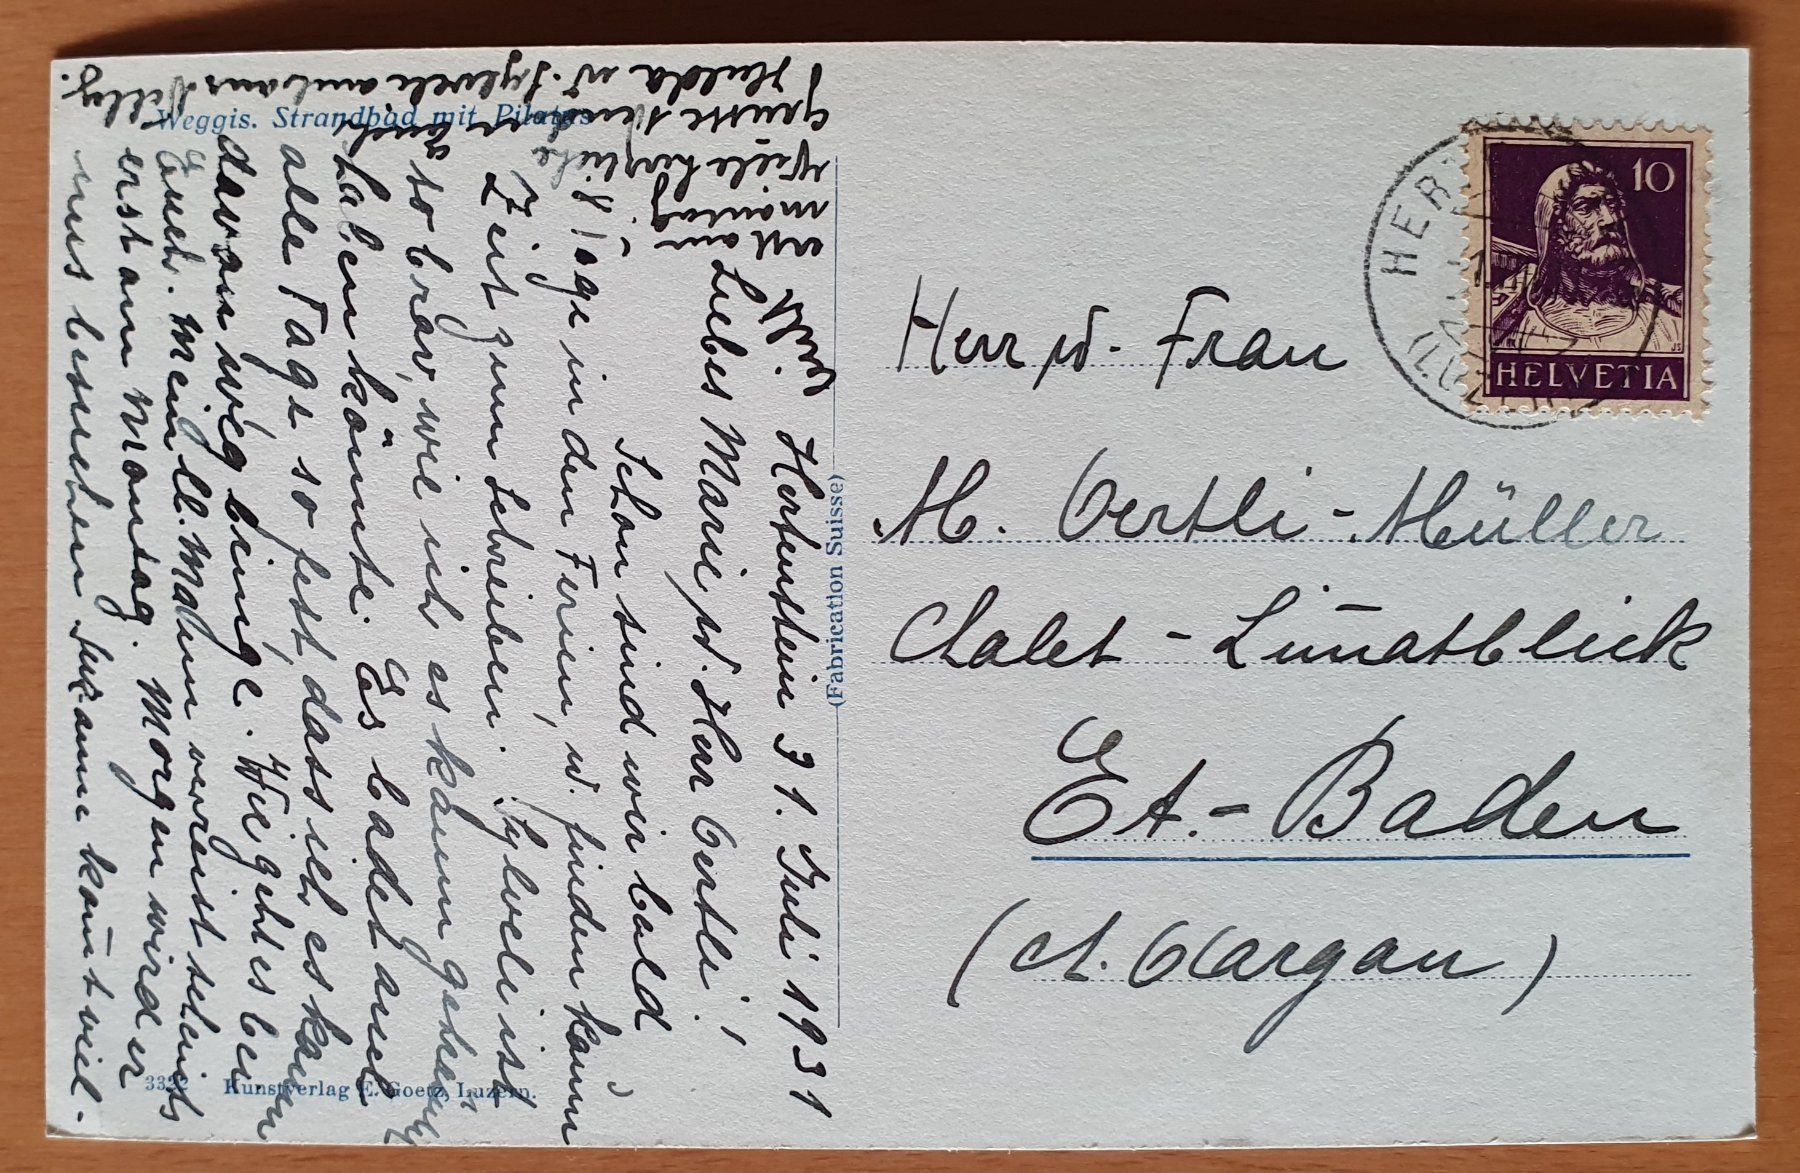 Weggis. Strandbad mit Pilatus
Hertenstein 31. Juli 1931
Liebes Marie, u. Herr Oertli!
Schon sind wir bald
8 Tage in den Ferien, u. finden kaum
Zeit zum schreiben. Sylveli ist
so brav, wie ich es kaum
haben könnte. Es badet auch
alle Tage so fest, dass ich es kaum
davon weg bringe. Wie geht es bei
Euch. Mein lb. Mann verreist
erst am Montag. Morgen wird er
uns besuchen kommt viel-
erst am
Montag
Viele herzliche
Grüsse
Hulda u. Sylveli
3322 Kunstverlag E. Goetz, Luzern.
(Fabrication Suisse)
10
HELVETIA
HER
(LUZERN)
Herr u. Frau
M. Oertli-Müller
Chalet-Limatblick
Et.-Baden
(Ct. Aargau)